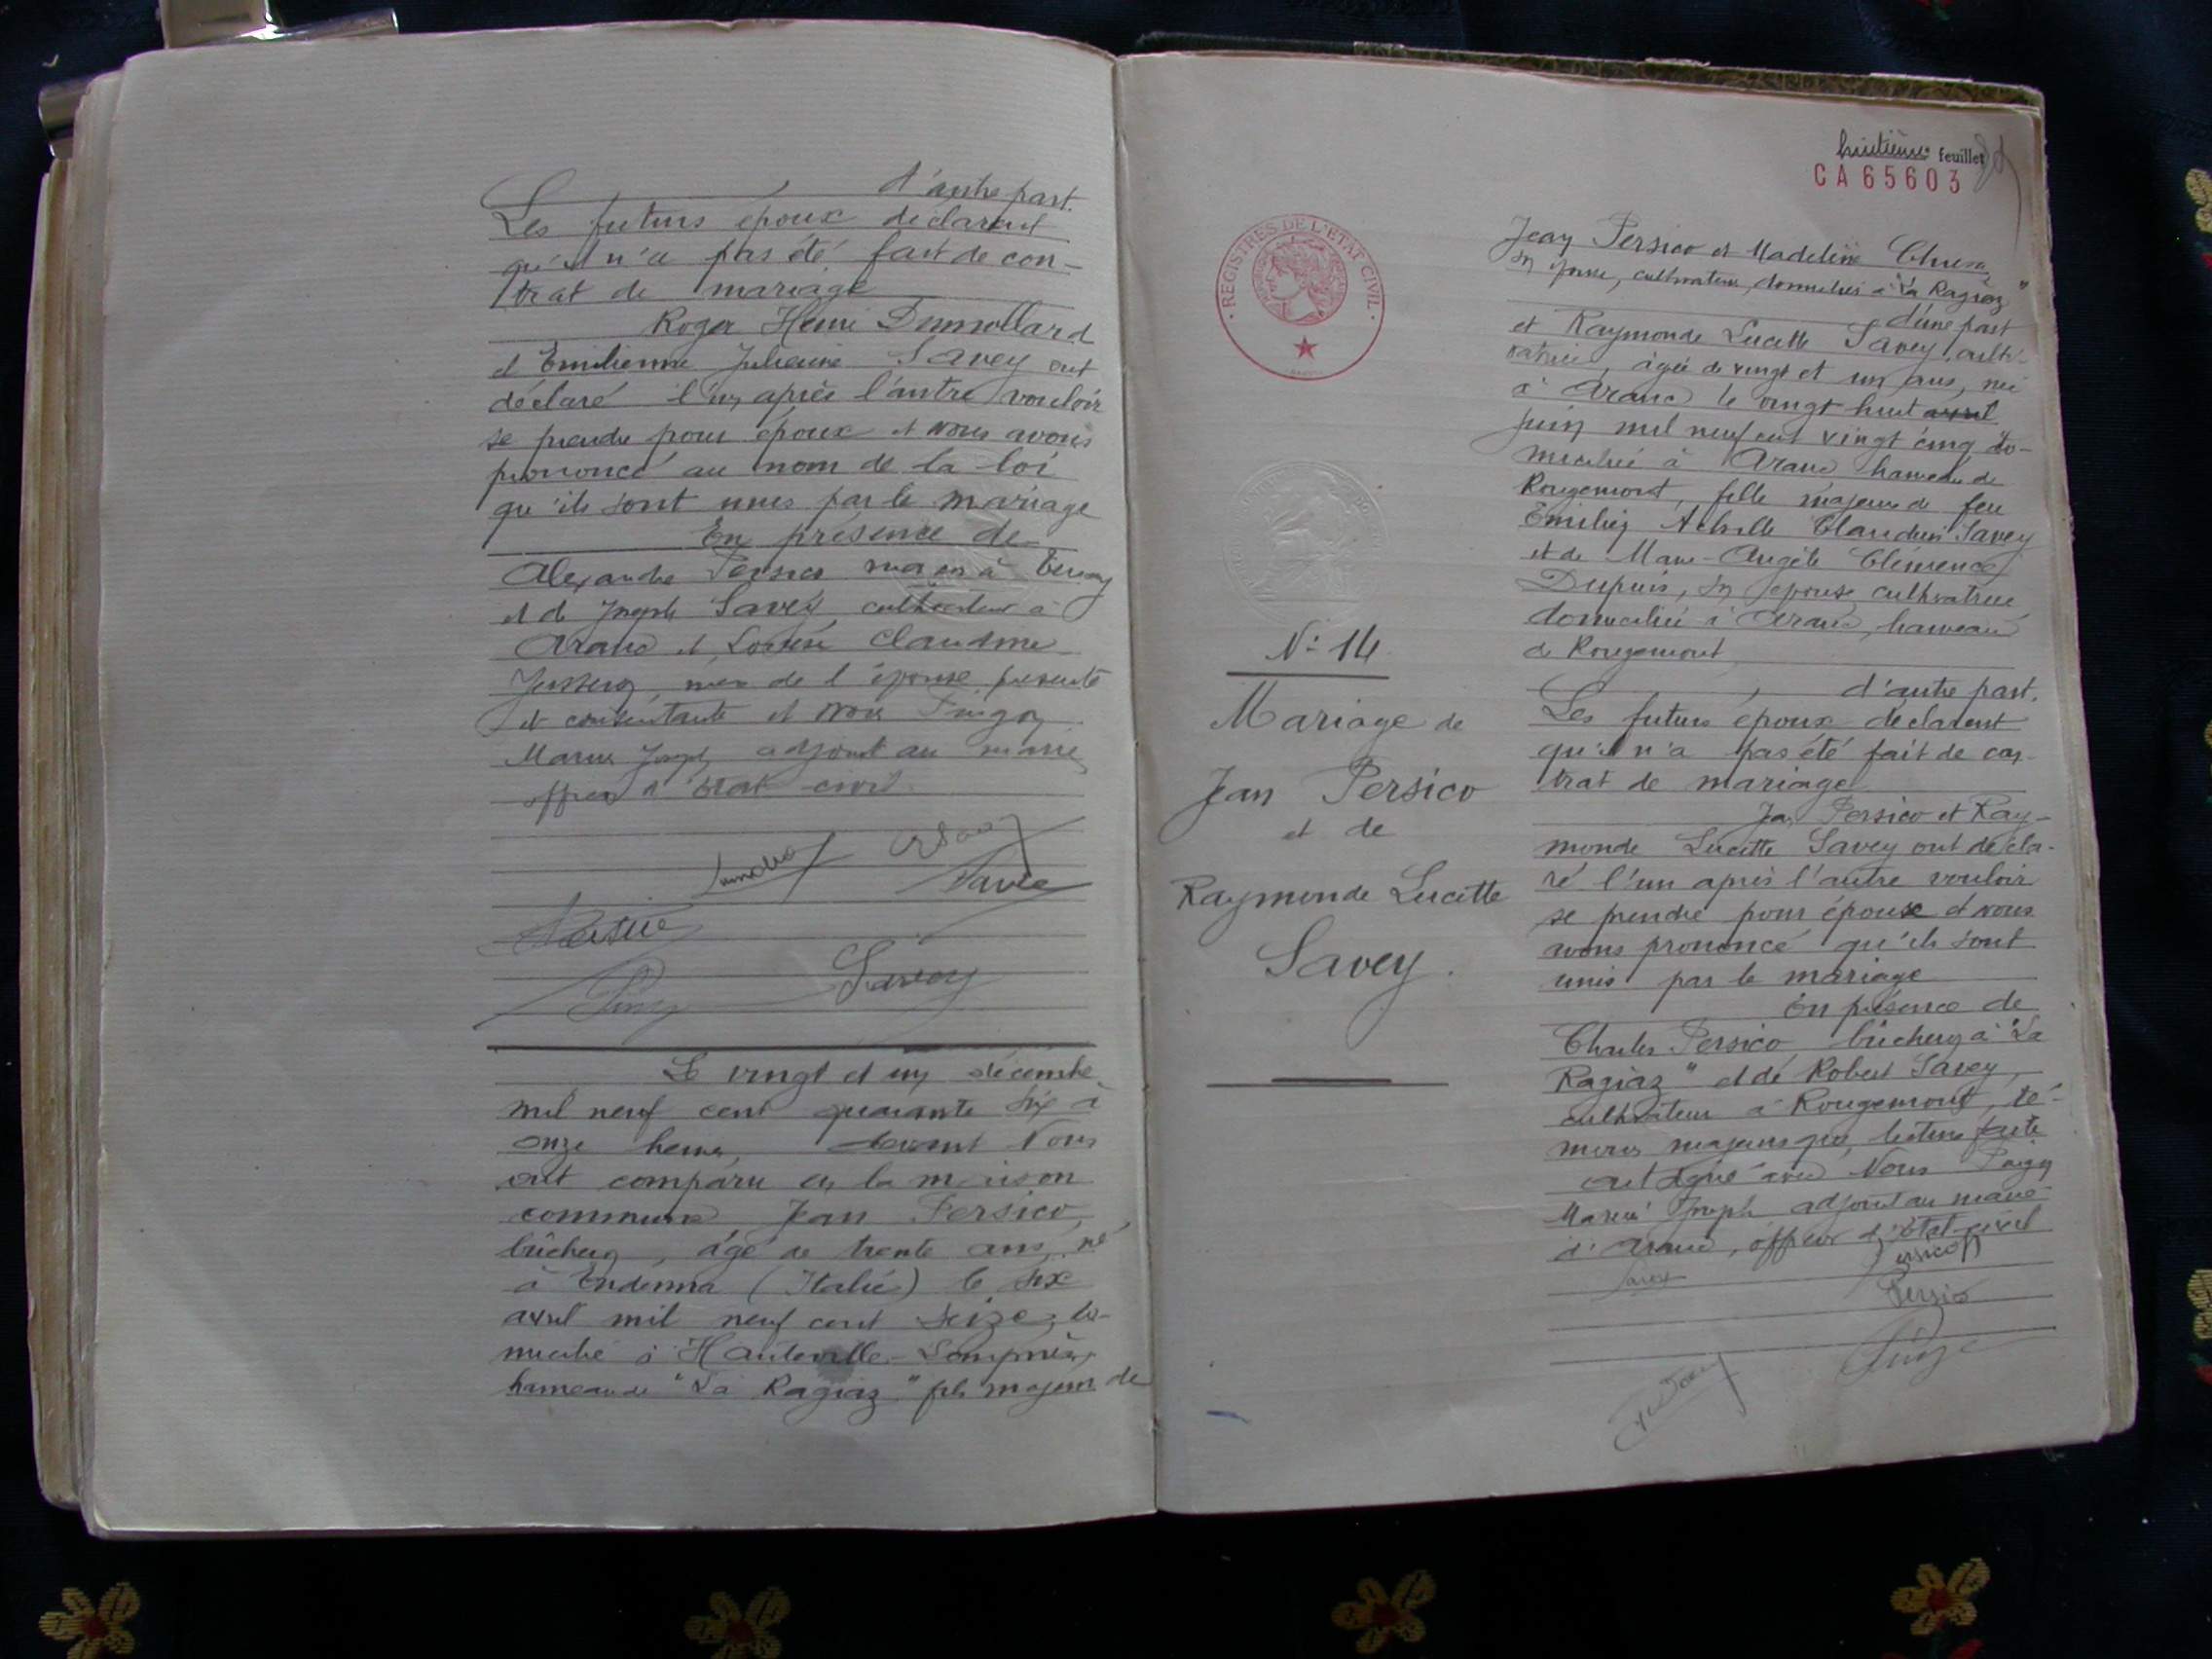 d'autre part.
Les futurs époux déclarent
qu'il n'a pas été fait de con-
trat de mariage
Roger Henri Dumollard
et Emilienne Julienne Savey ont
déclaré l'un après l'autre vouloir
se prendre pour époux et nous avons
prononcé au nom de la loi
qu'ils sont unis par le mariage
En présence de
Alexandre Persico maçon à
et de Joseph Savey, cultivateur à
Aranc et Claudine
mère de l'épouse, présente
et consentante et nous
Marius Joseph adjoint au maire
officier d'état-civil.
Savey
Le vingt et un décembre
mil neuf cent quarante six à
onze heures, devant Nous
ont comparu en la maison
commune Jean Persico,
bûcheron, âgé de trente ans, né
à Endenna (Italie) le six
avril mil neuf cent seize, do-
micilié à Hauteville-Lompnès,
hameau de "La Ragiaz" fils majeur de
huitième feuillet
CA 65603
REGISTRES DE L'ETAT CIVIL
N° 14
Mariage de
Jean Persico
et de
Raymonde Lucette
Savey.
Jean Persico et Madeleine
son épouse, cultivateurs, domiciliés à "La Ragiaz"
d'une part
et Raymonde Lucette Savey, culti-
vatrice, âgée de vingt et un ans, née
à Aranc le vingt huit avril
juin mil neuf cent vingt cinq do-
miciliée à Aranc hameau de
Rougemont, fille majeure de feu
Emilien Achille Claudius Savey
et de Marie-Angèle Clémence
Dupuis, son épouse cultivatrice
domiciliée à Aranc, hameau
de Rougemont
d'autre part.
Les futurs époux déclarent
qu'il n'a pas été fait de con-
trat de mariage
Jean Persico et Ray-
monde Lucette Savey ont décla-
ré l'un après l'autre vouloir
se prendre pour époux et nous
avons prononcé qu'ils sont
unis par le mariage
En présence de
Charles Persico bûcheron à "La
Ragiaz" et de Robert Savey,
cultivateur à Rougemont, té-
moins majeurs qui, lecture faite
ont signé avec Nous
Marius Joseph adjoint au maire
d'Aranc, officier d'état-civil
Savey
Persico
Persico